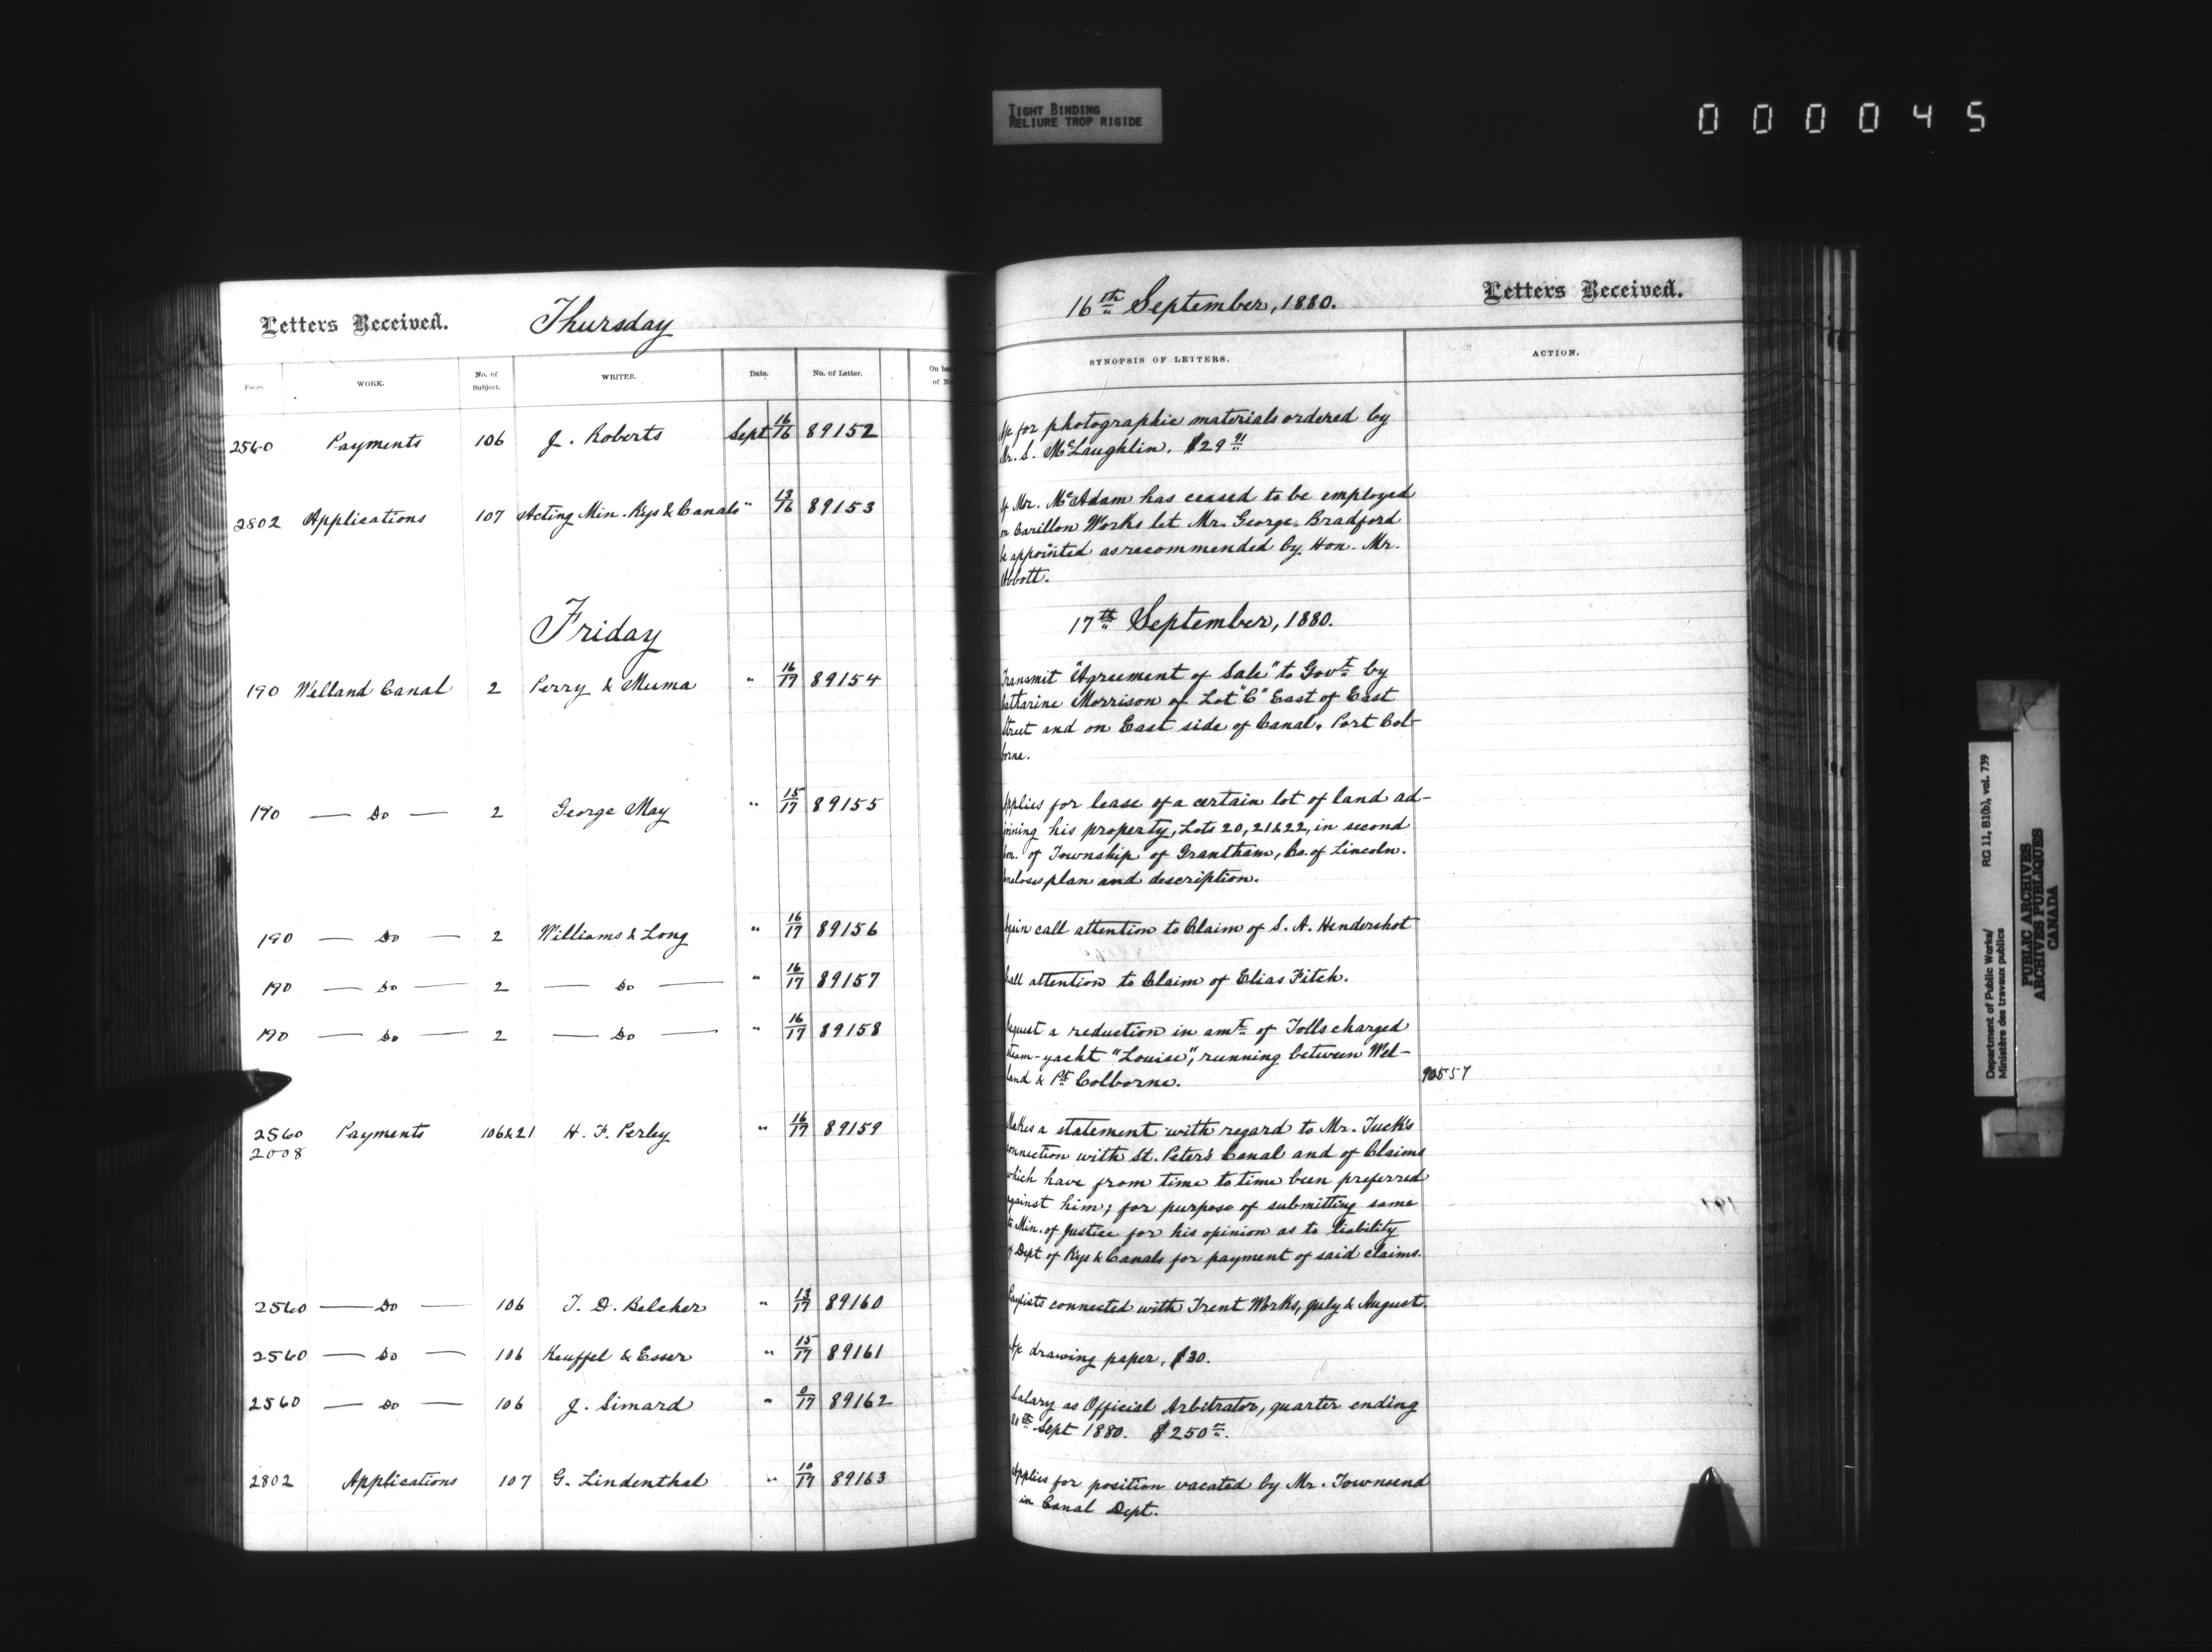 TIGHT BINDING
RELIURE TROP RIGIDE
000045
Letters Received. Thursday
Folio. WORK. No. of Subject. WRITER. Date. No. of Letter. On back of No.
2560 Payments 106 J. Roberts Sept 16/16 89152
2802 Applications 107 Acting Min. Rys & Canals " 13/16 89153
Friday
190 Welland Canal 2 Perry & Muma " 16/17 89154
190 — Do — 2 George May " 15/17 89155
190 — Do — 2 Williams & Long " 16/17 89156
190 — Do — 2 — Do — " 16/17 89157
190 — Do — 2 — Do — " 16/17 89158
2560 Payments 106&21 H. F. Perley " 16/17 89159
2008
2560 — Do — 106 T. D. Belcher " 13/17 89160
2560 — Do — 106 Keuffel & Esser " 15/17 89161
2560 — Do — 106 J. Simard " 0/17 89162
2802 Applications 107 G. Lindenthal " 10/17 89163
16th September, 1880. Letters Received.
SYNOPSIS OF LETTERS. ACTION.
A/c for photographic materials ordered by
Mr. S. McLaughlin. $29 91
If Mr. McAdam has ceased to be employed
on Carillon Works let Mr. George Bradford
be appointed as recommended by Hon. Mr.
Abbott.
17th September, 1880.
Transmit "Agreement of Sale" to Govt by
Catharine Morrison of Lot "C" East of East
Street and on East side of Canal, Port Col-
borne.
Applies for lease of a certain lot of land ad-
joining his property, Lots 20, 21 & 22, in second
Con. of Township of Grantham, Co. of Lincoln.
Encloses plan and description.
Again call attention to Claim of S. A. Hendershot
Call attention to Claim of Elias Fitch.
Request a reduction in amt of Tolls charged
steam-yacht "Louise", running between Wel-
land & Pt Colborne. 90557
Makes a statement with regard to Mr. Tuck's
connection with St. Peter's Canal and of Claims
which have from time to time been preferred
against him; for purpose of submitting same
to Min. of Justice for his opinion as to liability
of Dept of Rys & Canals for payment of said claims.
Paylists connected with Trent Works, July & August.
A/c drawing paper, $30.
Salary as Official Arbitrator, quarter ending
30th Sept 1880. $250
Applies for position vacated by Mr. Townsend
in Canal Dept.
Department of Public Works/ RG 11, B1(b), vol. 739
Ministère des travaux publics
PUBLIC ARCHIVES
ARCHIVES PUBLIQUES
CANADA